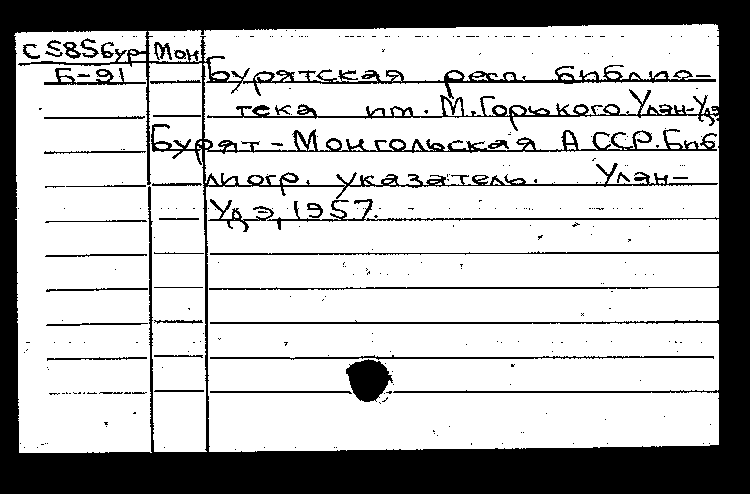 С585бур- Мон
Б-91 Бурятская респ. библио-
тека им. М. Горького. Улан-Удэ
Бурят-Монгольская АССР. Биб
лиогр. указатель. Улан-
Удэ, 1957.